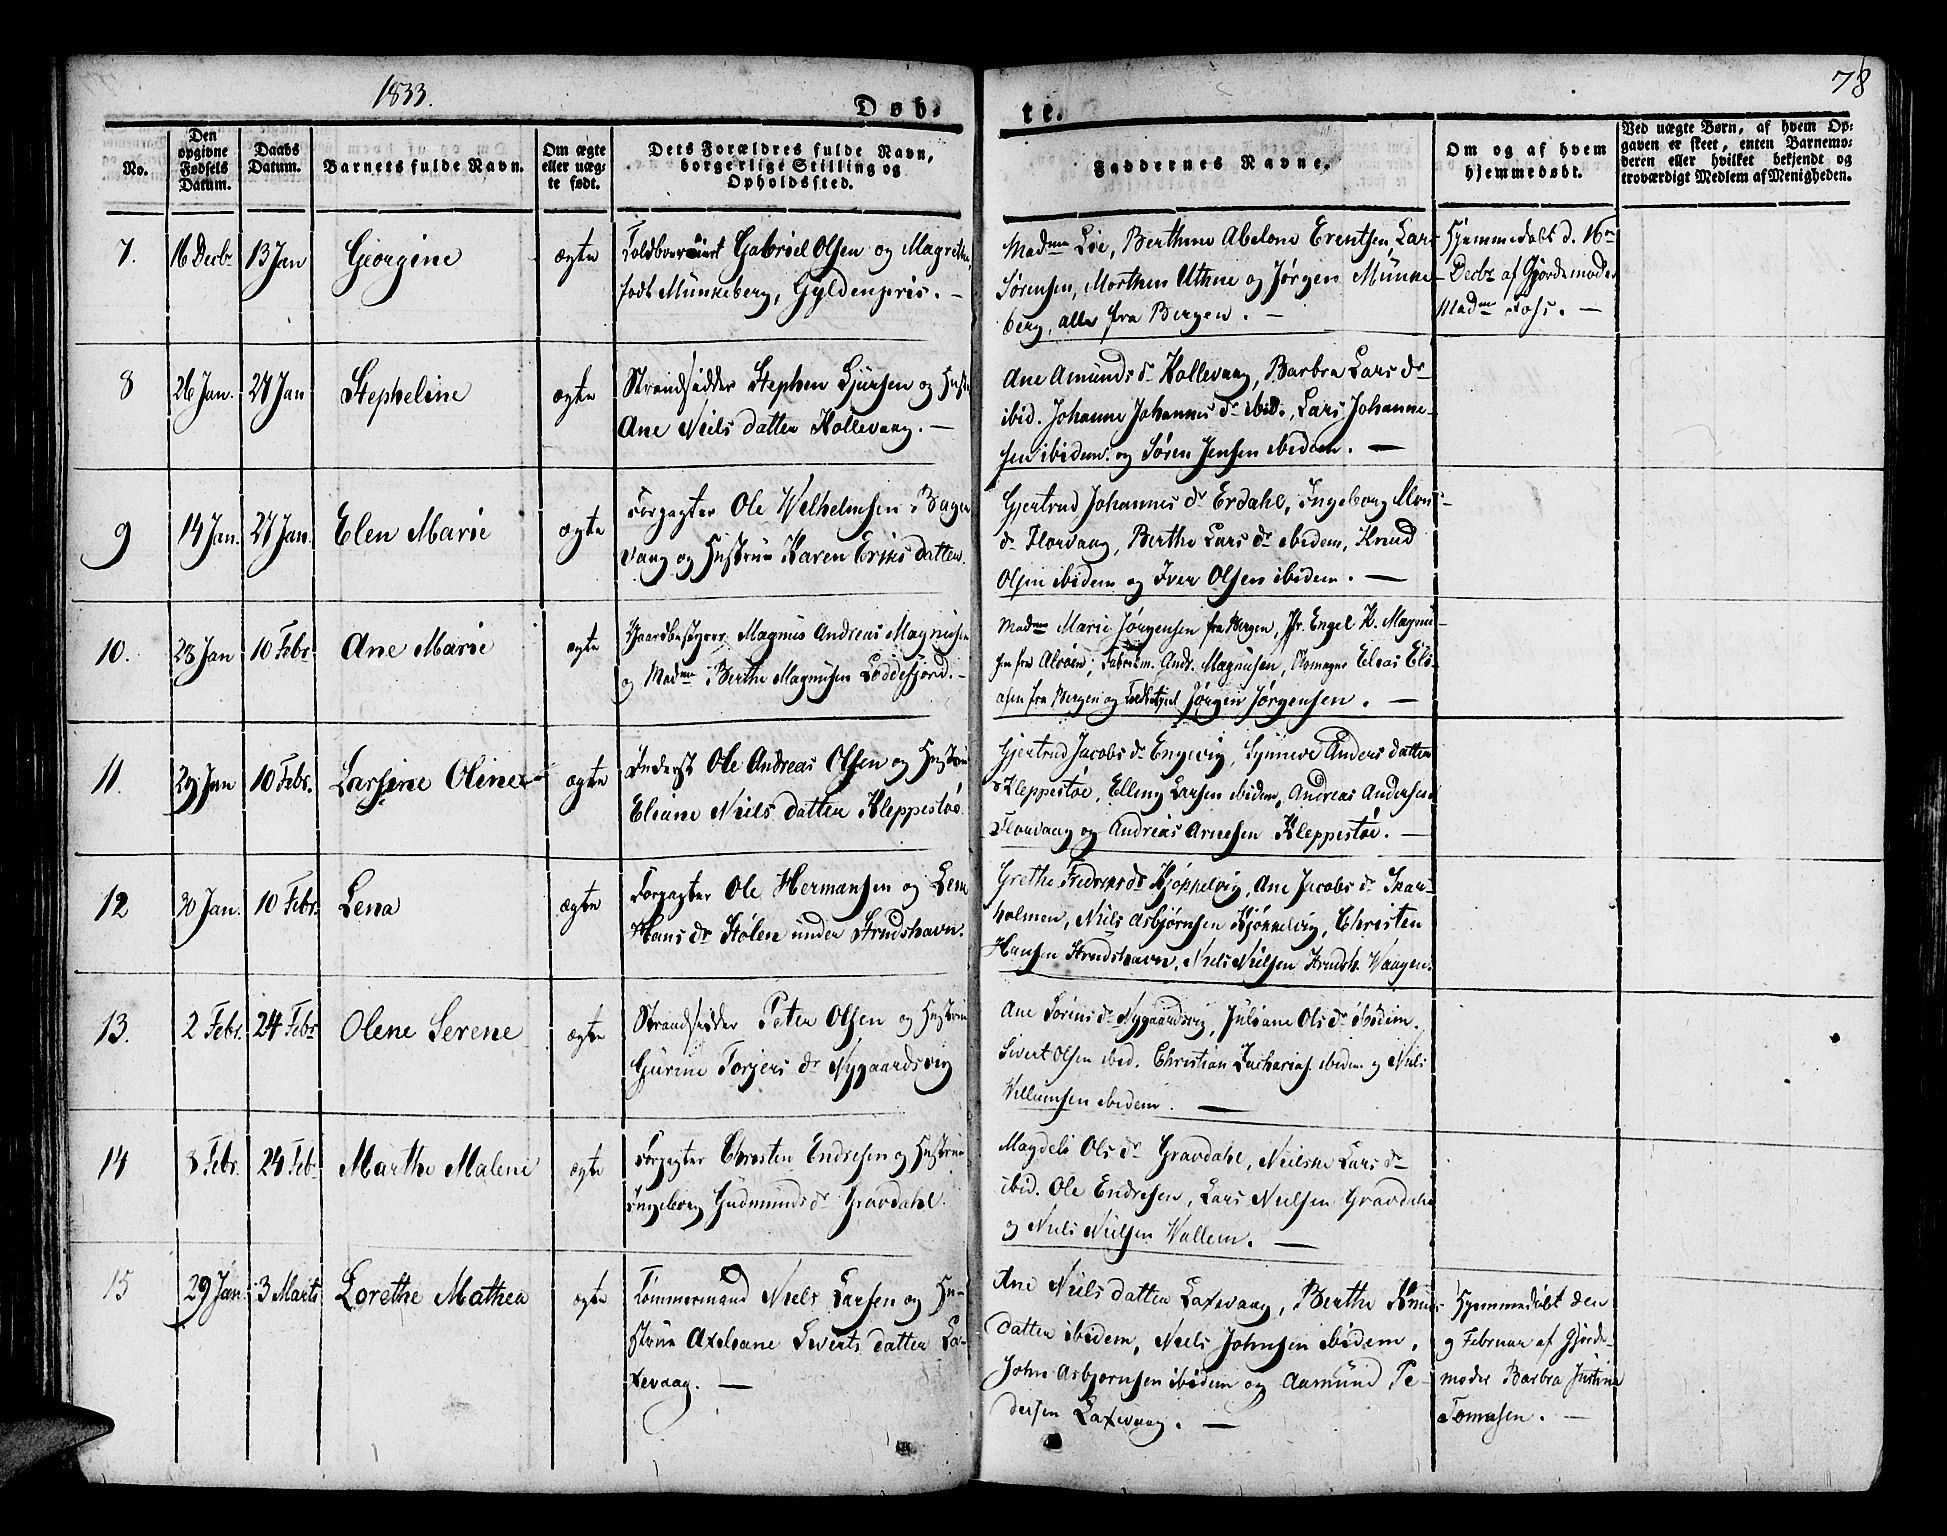 1833.
78
Døb-
te.
No.
Den opgivne Fødsels Datum.
Daabs Datum.
Barnets fulde Navn.
Om ægte eller uægte født.
Dets Forældres fulde Navn, borgerlige Stilling og Opholdssted.
Faddernes Navne.
Om og af hvem hjemmedøbt.
Ved uægte Børn, af hvem Opgaven er skeet, enten Barnemoderen eller hvilket bekjendt og troværdigt Medlem af Menigheden.
7.
16 Decbr
13 Jan
Georgine
ægte
Gabriel Olsen og Magrethe,
født Münkeberg, Gyldenpris. —
Madme Lie, Berthine Abelone Erentsen, Lars
Sørensen, Morthen Uthne og Jørgen Münke-
berg, alle fra Bergen. —
Hjemmedøbt d. 16en
Decbr af Gjordemoder
Madme Foss. —
8
26 Jan.
27 Jan
Stepheline
ægte
Strandsidder Stephen Sjursen og Hustr
Ane Niels datter Kollevaag. —
Ane Amunds dr Kollevaag, Barbra Lars dr
ibid. Johanne Johannes dr ibid., Lars Johanne-
sen ibidem. og Søren Jensen ibidem. —
9
14 Jan.
27 Jan.
Elen Marie
ægte
Forpagter Ole Welhelmsen i Bager
vaag og Hustrue Karen Eriks datter.
Gjertrud Johannes dr Erdahl, Ingeborg Mons
dr Florvaag, Berthe Lars dr ibidem, Knud
Olsen ibidem og Iver Olsen ibidem. —
10.
23 Jan
10 Febr
Ane Marie
ægte
Gaardbestyrer Magnus Andreas Magnusen
og Madme Berthe Magnusen Loddefjord. —
Madme Marie Jørgensen fra Bergen, Jfr. Engel K. Magnu-
sen fra Alvøen, Fabrikm. Andr. Magnusen, Elias Eli-
asen fra Bergen og Jørgen Jørgensen. —
11.
29 Jan
10 Febr.
Larsine Oline
ægte
Inderst Ole Andreas Olsen og Hustrue
Eliane Niels datter Kleppestøe.
Gjertrud Jacobs dr Engevig, Synneve Anders datter
Kleppestøe, Elling Larsen ibidem, Andreas Andersen
Florvaag og Andreas Arnesen Kleppestøe. —
12
30 Jan.
10 Febr.
Lena
ægte
Forpagter Ole Hermansen og Lene
Hans dr Stølen under Strudshavn.
Grethe Fredriks dr Kjøkkelvig, Ane Jacobs dr Skar-
holmen, Niels Asbjørnsen Kjøkkelvig, Christen
Hansen Strudshavn, Niels Nielsen Strudsh. Vaagen.
13.
2 Febr.
24 Febr
Olene Serene
ægte
Strandsidder Peter Olsen og Hustrue
Gurine Torjers dr Nygaardsvig
Ane Sørens dr Nygaardsvig, Juliane Ols dr ibidem.
Sivert Olsen ibid. Christian Zacharias. ibidem og Niels
Willumsen ibidem. —
14
8 Febr.
24 Feb.
Marthe Malene
ægte
Forpagter Christen Endresen og Hustrue
Ingeborg Gudmunds dr Gravdahl.
Magdeli Ols dr Gravdahl, Nielske Lars dr
ibid. Ole Endresen, Lars Nielsen Gravdahl
og Niels Nielsen Wallem. —
15
29 Jan.
3 Marts
Lorethe Mathea
ægte
Tømmermand Niels Larsen og Hu-
strue Axeliane Siverts datter La-
xevaag. —
Ane Niels datter Laxevaag, Berthe Knuds
datter ibidem, Niels Johnsen ibidem,
John Asbjørnsen ibidem og Aamund Pe-
dersen Laxevaag. —
Hjemmedøbt den
9 Februar af Gjorde-
moder Barbra Justine
Tomasen. —